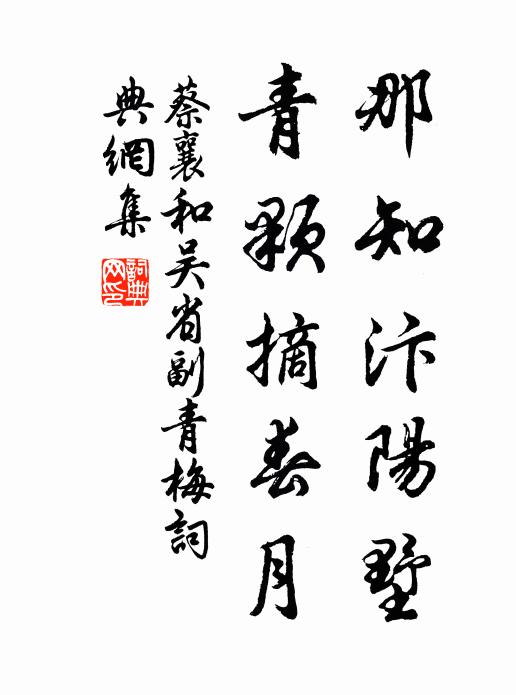 那知汴陽墅
青顆摘春月
蔡襄和吴省副青梅詞
典網集
詞典
网印